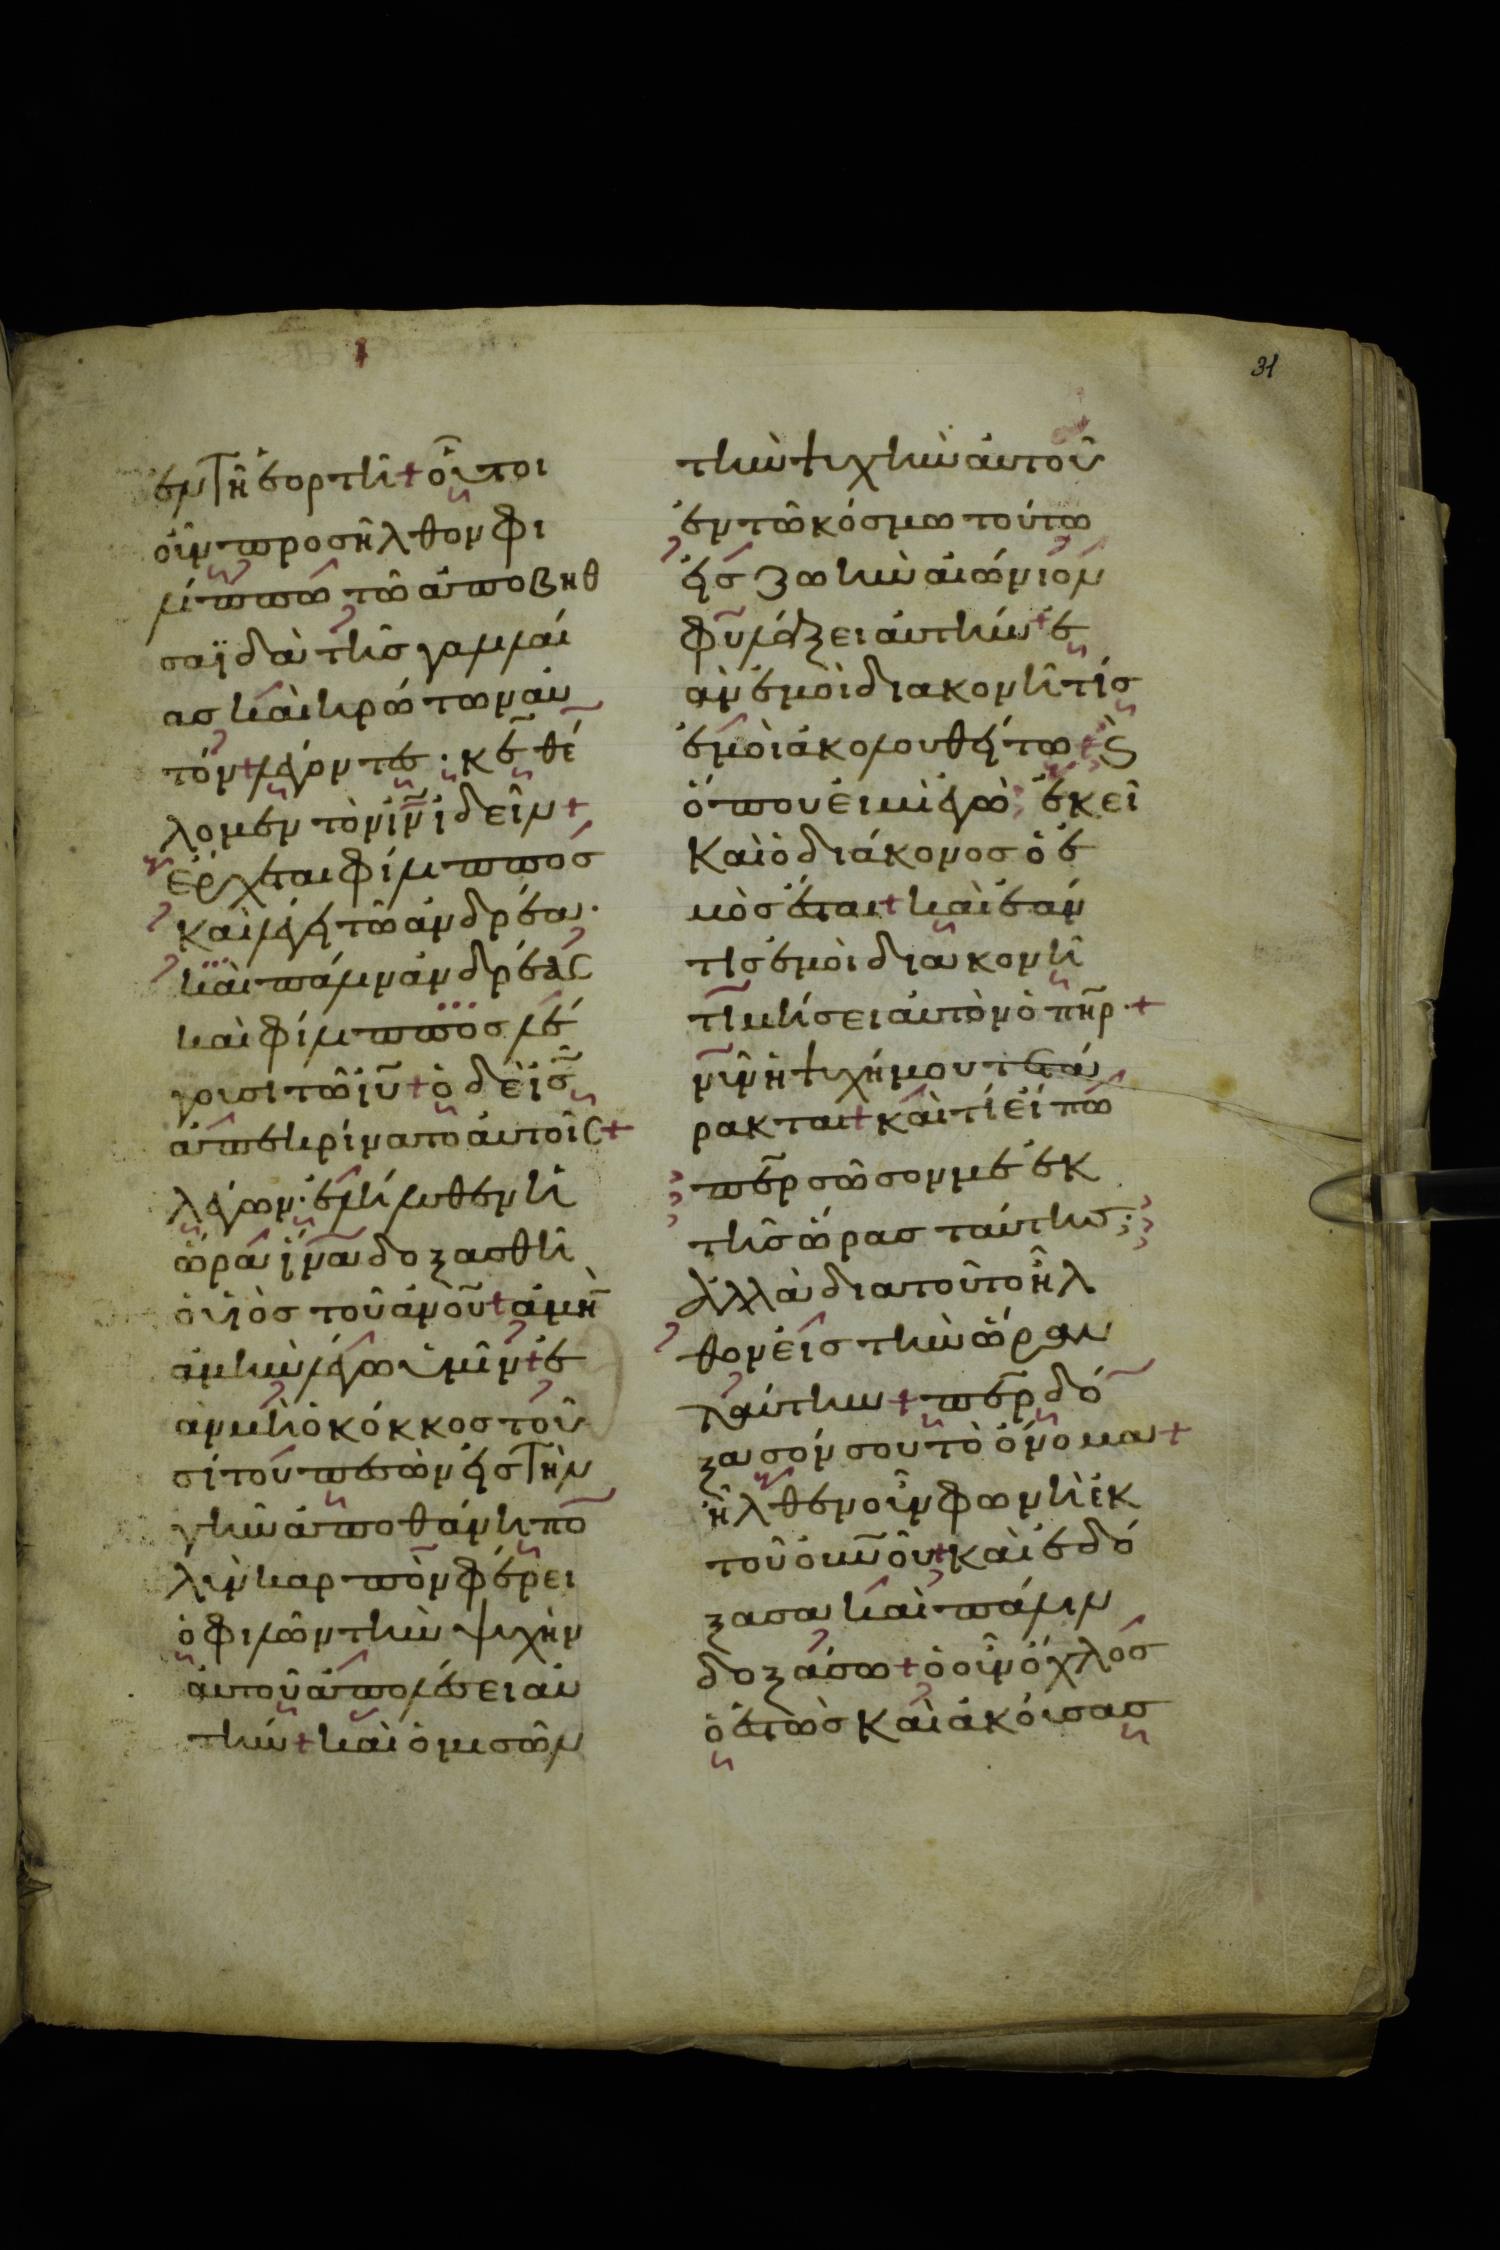 31
ἐν τῆ ἑορτῆ + οὗτοι
οὖν προσῆλθον φι
λίππω τῶ ἀπὸ βηθ
σαϊδὰ τῆς γαλιλαί
ας καὶ ἠρώτων αὐ
τόν + λέγοντες · κε̄ θέ
λομεν τὸν ἰν̄ ἰδεῖν +
ἔρχεται φίλιππος
καὶ λέγει τῶ ἀνδρέα ·
καὶ πάλιν ἀνδρέας
καὶ φίλιππος λέ
γουσι τῶ ἰῡ + ὁ δὲ ἰς̄
ἀπεκρίνατο αὐτοῖς +
λέγων · ἐλήλυθεν ἡ
ὥρα ἵνα δοξασθῆ
ὁ υἱὸς τοῦ ἀνοῦ + ἀμὴν
ἀμὴν λέγω ὑμῖν + ἐ
ὰν μὴ ὁ κόκκος τοῦ
σίτου πεσὼν εἰς τὴν
γῆν ἀποθάνη πο
λὺν καρπὸν φέρει
ὁ φιλῶν τὴν ψυχὴν
αὐτοῦ ἀπολέσει αὐ
τήν + καὶ ὁ μισῶν
τὴν ψυχὴν αὐτοῦ
ἐν τῶ κόσμω τούτω
εἰς ζωὴν αἰώνιον
φυλάξει αὐτήν + ἐ
ὰν ἐμοὶ διακονῆ τίς
ἐμοὶ ἀκολουθείτω + ϗ
ὅπου εἰμὶ ἐγὼ ἐκεῖ
καὶ ὁ διάκονος ὁ ἐ
μὸς ἔσται + καὶ ἐάν
τις ἐμοὶ διακονῆ
τιμήσει αὐτὸν ὁ πη̄ρ · +
νῦν ἡ ψυχή μου τετά
ρακται + καὶ τί εἴπω
πε̄ρ σῶσον με ἐκ
τῆς ὥρας ταύτης ;
ἀλλὰ διατοῦτο ἦλ
θον εἰς τὴν ὥραν
ταύτην + πε̄ρ δό
ξασόν σου τὸ ὄνομα +
ἦλθεν οὖν φωνὴ ἐκ
τοῦ οὐνοῦ + καὶ ἐδό
ξασα καὶ πάλιν
δοξάσω + ὁ οὖν ὄχλος
ὁ ἑστὼς καὶ ἀκούσας